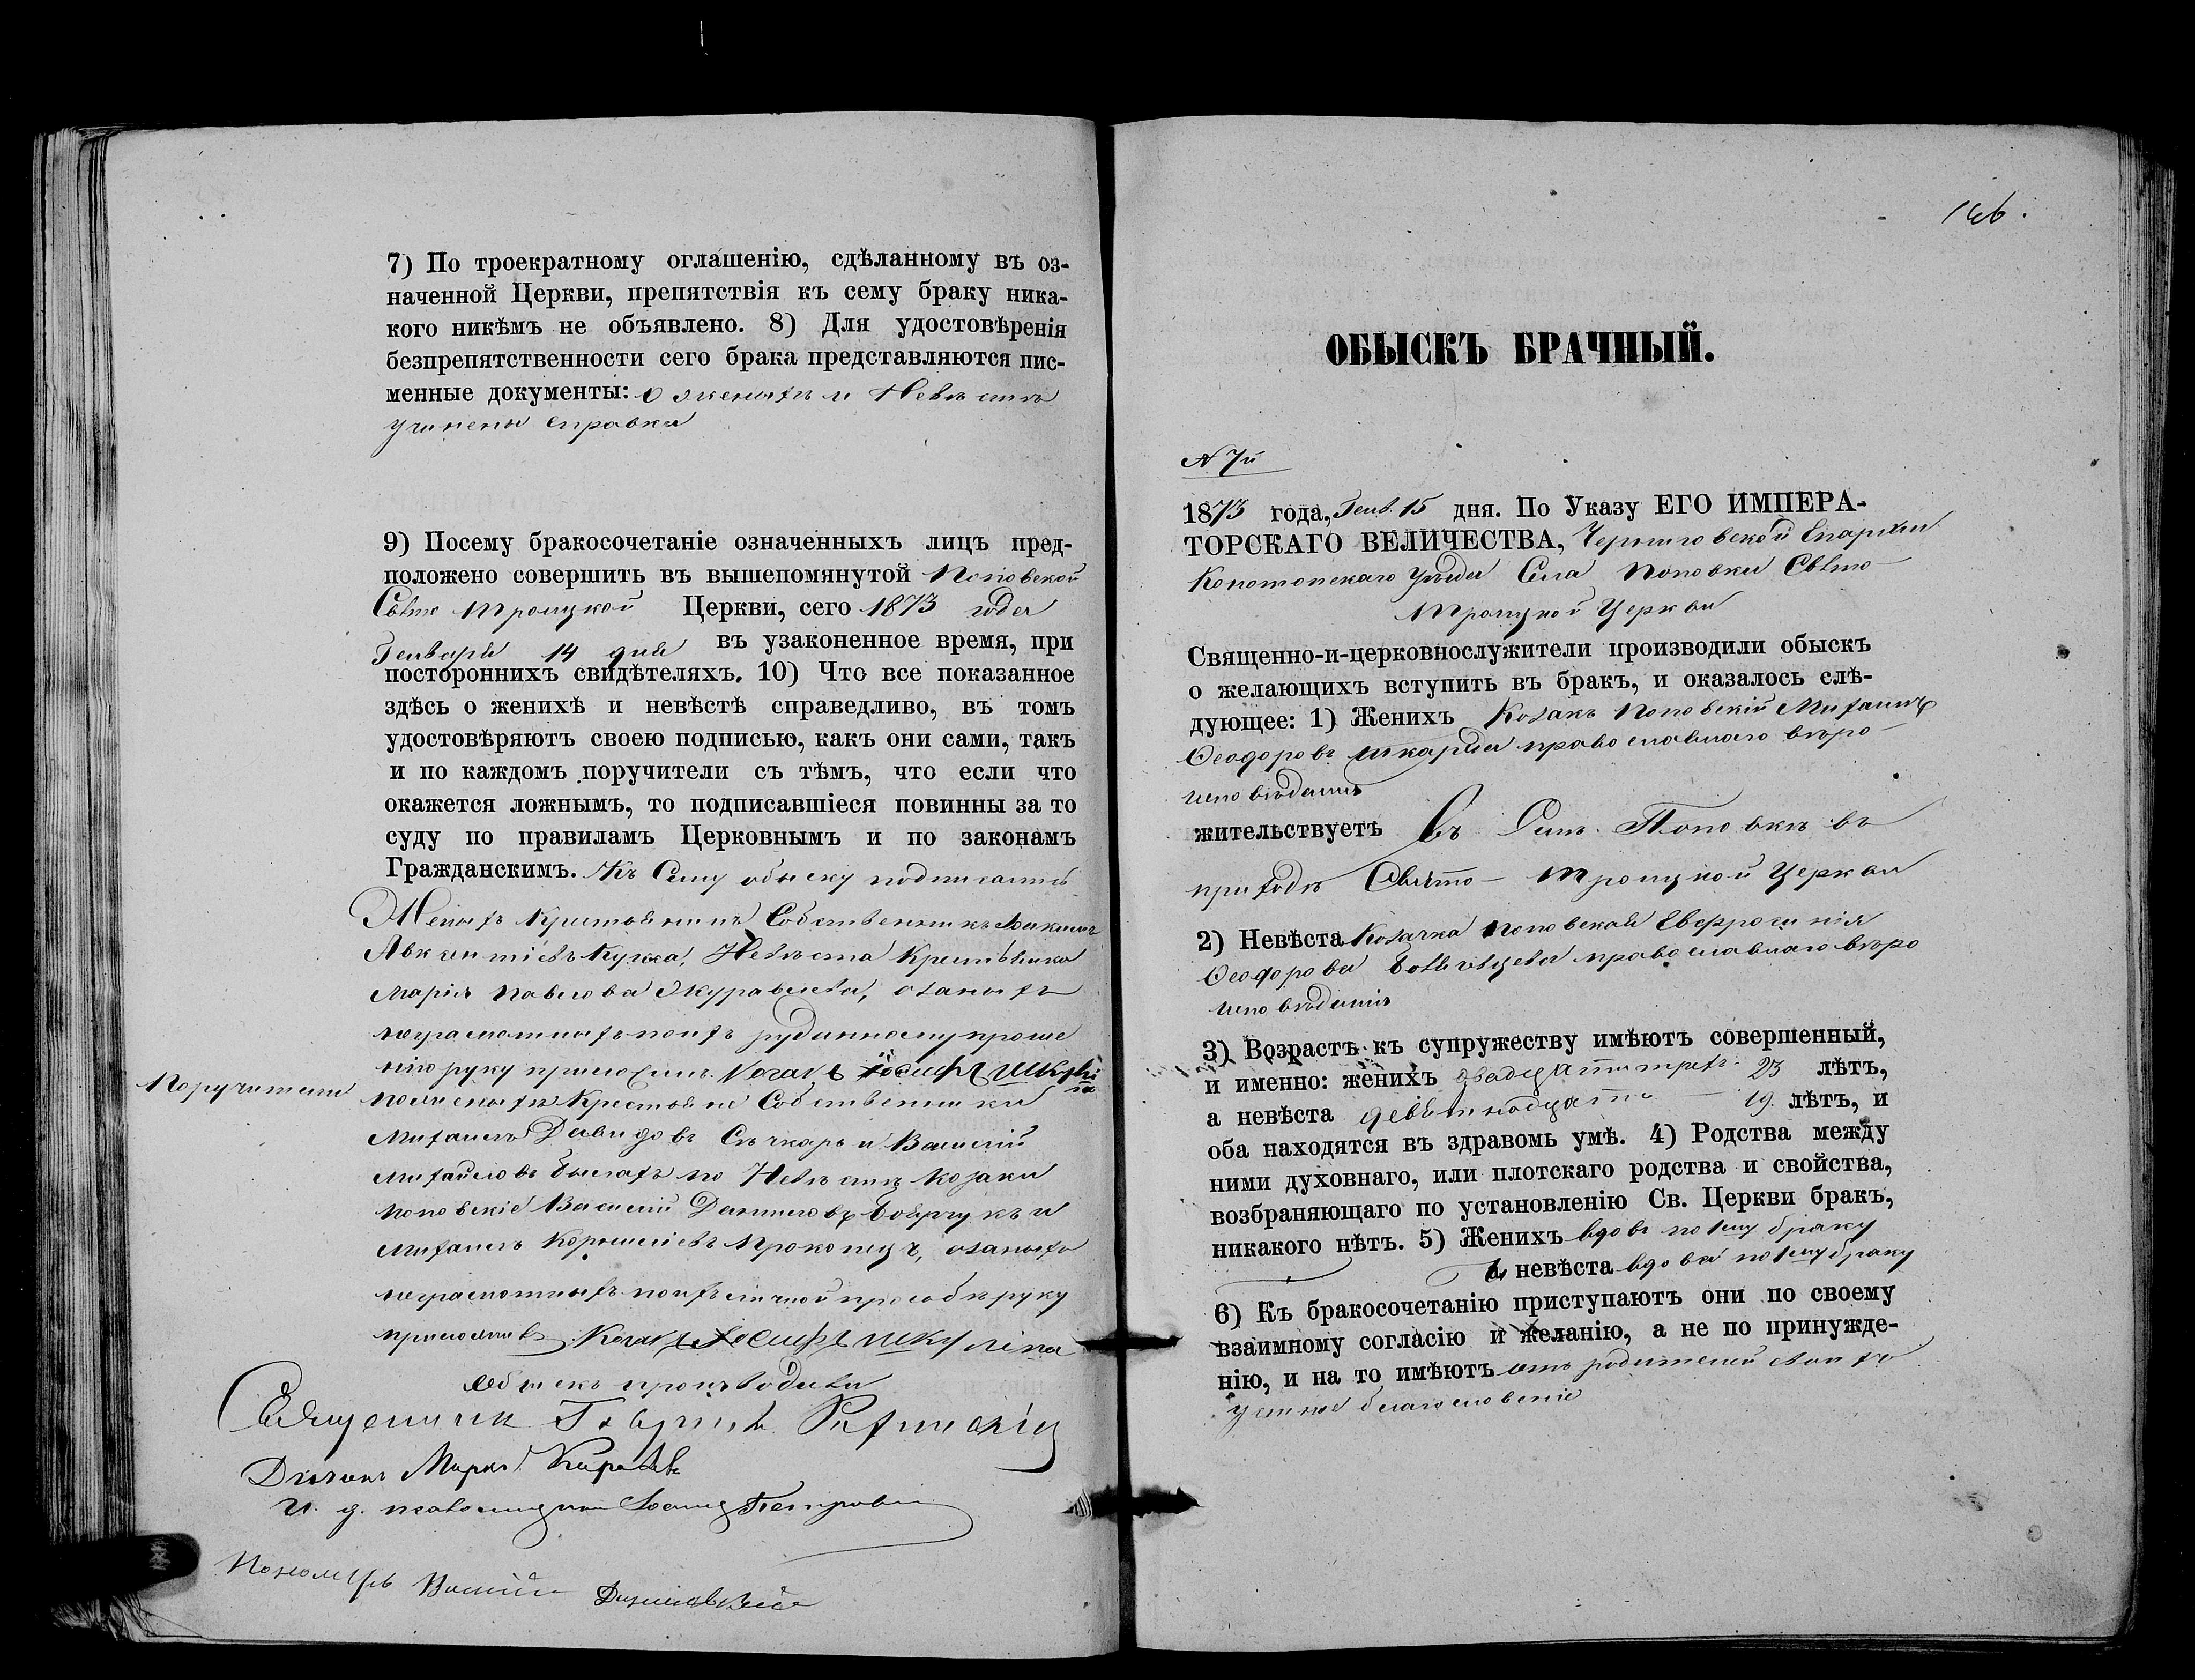 7) По троекратному оглашенію, сдѣланному въ оз-
наченной Церкви, препятствія къ сему браку ника-
кого никѣмъ не объявлено. 8) Для удостовѣренія
безпрепятственности сего брака представляются пис-
менные документы: о женихѣ и Невѣстѣ
учинены справки
9) Посему бракосочетаніе означенныхъ лицъ пред-
положено совершить въ вышепомянутой Поповской
Свято Троицкой Церкви, сего 1873 года
Генваря 14 дня въ узаконенное время, при
постороннихъ свидѣтеляхъ. 10) Что все показанное
здѣсь о женихѣ и невѣстѣ справедливо, въ томъ
удостовѣряютъ своею подписью, какъ они сами, такъ
и по каждомъ поручители съ тѣмъ, что если что
окажется ложнымъ, то подписавшіеся повинны за то
суду по правиламъ Церковнымъ и по законамъ
Гражданскимъ. Къ Сему обыску подписались
Женихъ Крестьянинъ Собственникъ
Авксентіевъ Невѣста Крестьянка
Марія Павлова Журавлева, о
неграмотныхъ по ихъ рукоданному проше
нію руку приложилъ Козакъ Іосифъ Шкурі
па
Поручители
по женихѣ Крестьяне Собственники
Михаилъ Давидовъ и Василий
Михайловъ по Невѣстѣ Козаки
Поповскіе Василий Данииловъ Боярчукъ и
Михаилъ Корнилиевъ Прокопецъ,
неграмотныхъ по ихъ личной просьбѣ руку
приложилъ Козакъ Іосифъ Шкуріпа
Обыскъ производили
Священникъ Гавриилъ
Дьячокъ Маркъ
И. д. псаломщика Петровскій
Пономарь Василий
146.
ОБЫСКЪ БРАЧНЫЙ.
N 7й
1873 года, Генв. 15 дня. По Указу ЕГО ИМПЕРА-
ТОРСКАГО ВЕЛИЧЕСТВА, Черниговской Епархіи
Конотопскаго уѣзда Села Поповки Свято
Троицкой Церкви
Священно-и-церковнослужители производили обыскъ
о желающихъ вступить въ бракъ, и оказалось слѣ-
дующее: 1) Женихъ Козакъ Поповскій Михаилъ
Ѳеодоровъ Шкарда православнаго вѣро-
исповѣданія
жительствуетъ Въ Селѣ Поповкѣ въ
приходѣ Свято-Троицкой Церкви
2) Невѣста Козачка Поповская Евфросинія
Ѳеодорова православнаго вѣро
исповѣданія
3) Возрастъ къ супружеству имѣютъ совершенный,
и именно: женихъ двадцати трехъ 23 лѣтъ,
а невѣста девятнадцати — 19 лѣтъ, и
оба находятся въ здравомъ умѣ. 4) Родства между
ними духовнаго, или плотскаго родства и свойства,
возбраняющаго по установленію Св. Церкви бракъ,
никакого нѣтъ. 5) Женихъ вдовъ по 1му браку
а невѣста вдова по 1му браку
6) Къ бракосочетанію приступаютъ они по своему
взаимному согласію и желанію, а не по принужде-
нію, и на то имѣютъ отъ родителей своихъ
устное благословеніе